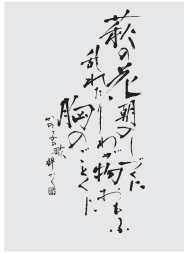 萩の花朝のしづくに
乱れたりわが物おもふ
胸のごとくに
かの子の歌